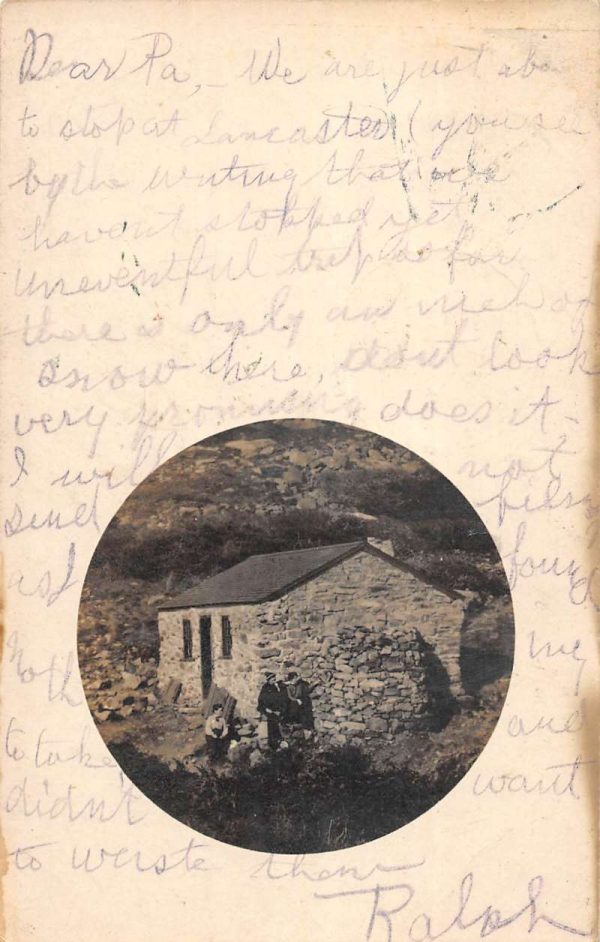 Dear Pa, - We are just abo
to stop at Lancaster (you see
by the writing that we
havent stopped yet
Uneventful trip so far
there is only an inch of
snow here, dont look
very promising does it -
I will not
send films
as I found
noth ing
to take and
didn't want
to waste them
Ralph